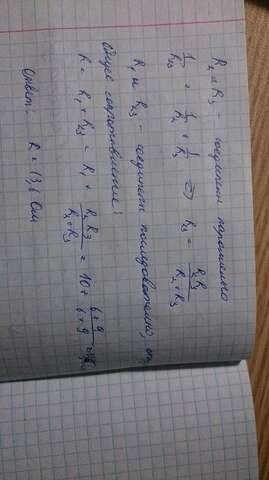 R₂ и R₃ - соединены параллельно
1/R₂₃ = 1/R₂ + 1/R₃ ⇒ R₂₃ = R₂R₃/(R₂+R₃)
R₁ и R₂₃ - соединены последовательно,
общее сопротивление:
R = R₁ + R₂₃ = R₁ + R₂R₃/(R₂+R₃) = 10 + 6·9/(6+9) =
Ответ: R = 13,6 Ом